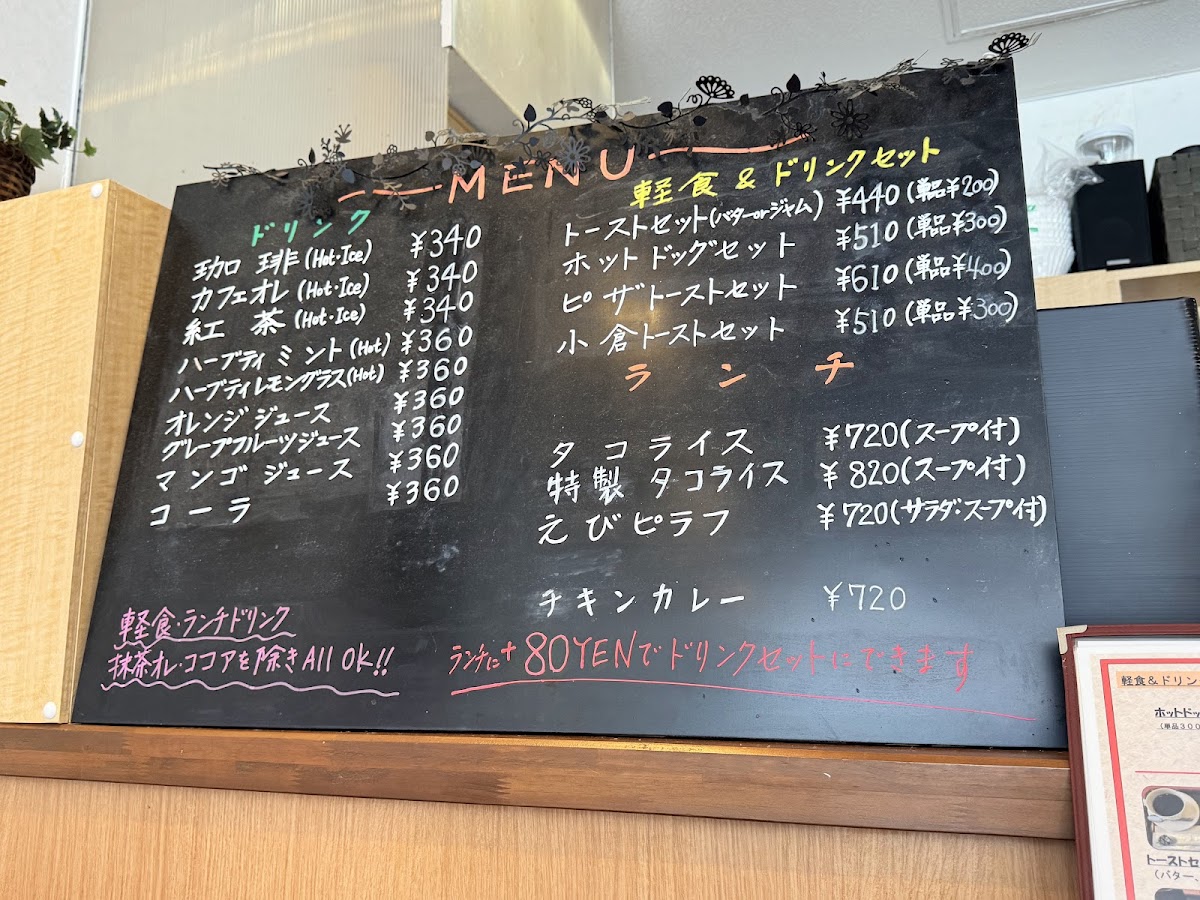 MENU
ドリンク
珈琲(Hot・Ice) ¥340
カフェオレ(Hot・Ice) ¥340
紅茶(Hot・Ice) ¥340
ハーブティミント(Hot) ¥360
ハーブティレモングラス(Hot) ¥360
オレンジジュース ¥360
グレープフルーツジュース ¥360
マンゴジュース ¥360
コーラ ¥360
軽食・ランチドリンク
抹茶オレ・ココアを除きAll OK!!
軽食&ドリンクセット
トーストセット(バターorジャム) ¥440(単品¥200)
ホットドッグセット ¥510(単品¥300)
ピザトーストセット ¥610(単品¥400)
小倉トーストセット ¥510(単品¥300)
ランチ
タコライス ¥720(スープ付)
特製タコライス ¥820(スープ付)
えびピラフ ¥720(サラダ・スープ付)
チキンカレー ¥720
ランチに+80YENでドリンクセットにできます
軽食&ドリン
ホットドッ
(単品300
トーストセ
(バター、